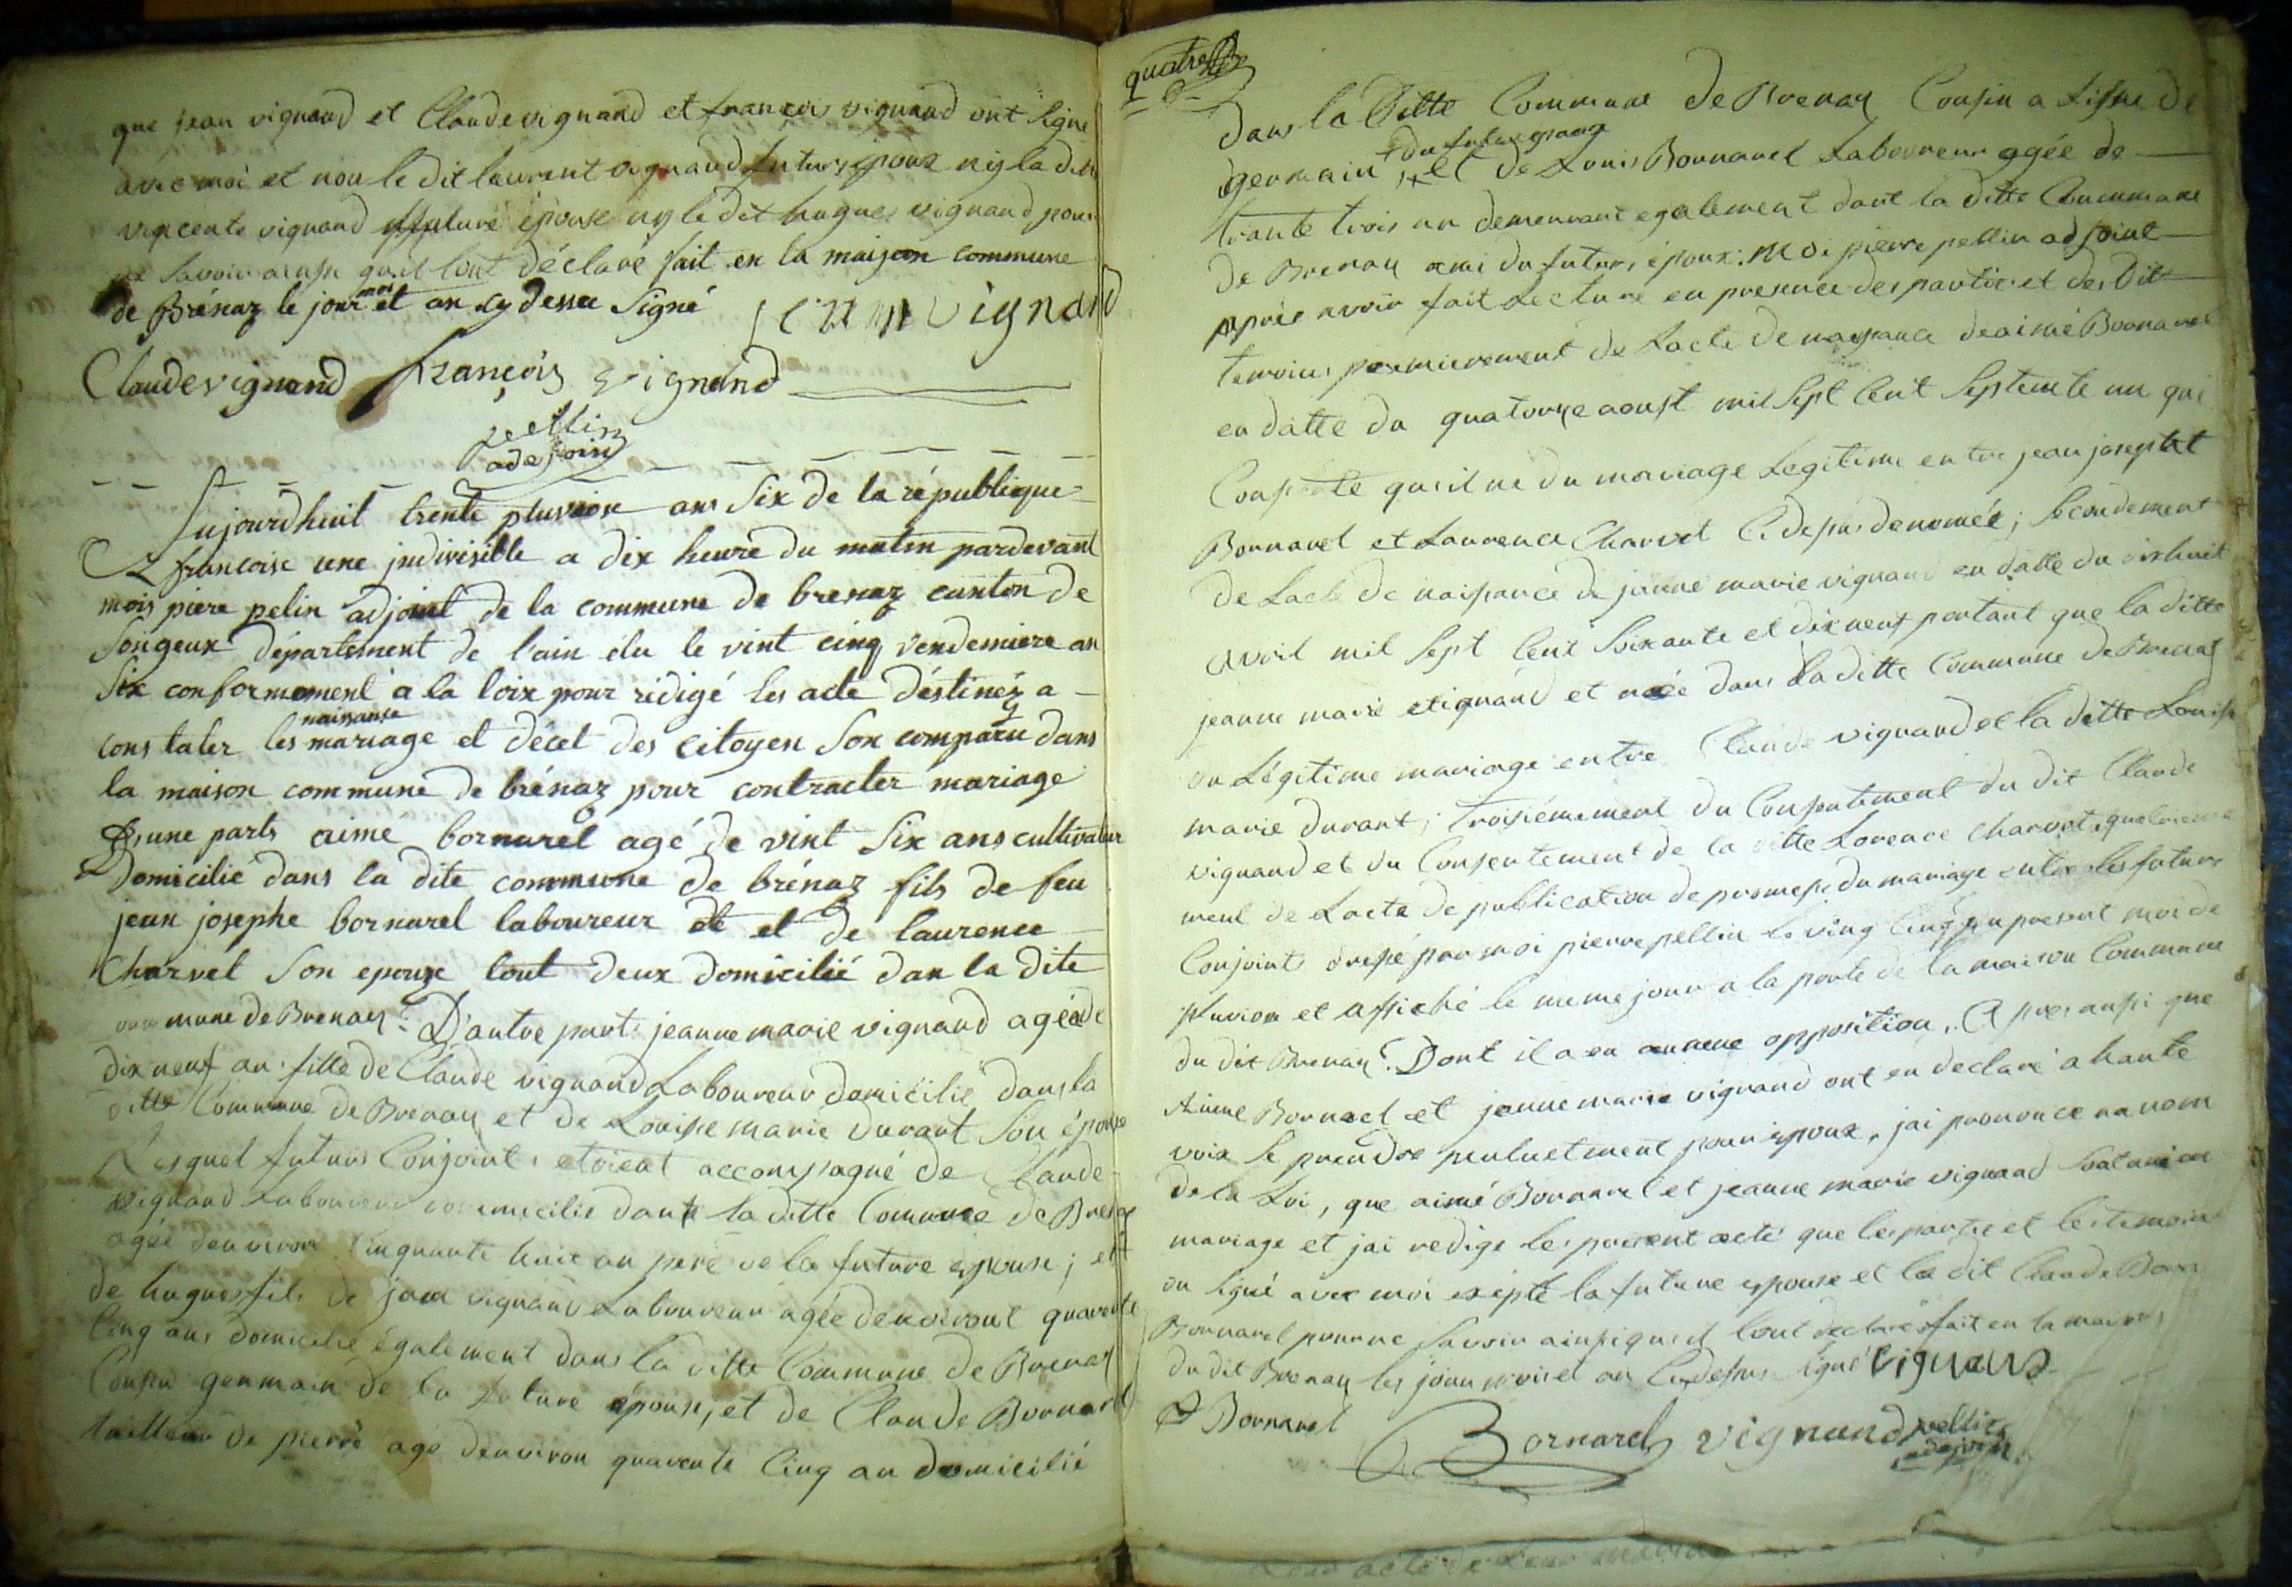 que jean vignand et Claude vignand et francois vignand ont signé
avec moi et non le dit laurent vignand futur époux ny la dite
vincente vignand future épouse ny le dit hugues vignand pour
ne savoir ainsi qu'il l'ont déclaré fait en la maison commune
de Brénaz le jour mois et an cy dessu signé jean vignand
Claude vignand françois vignand
pellin
adejoint
Aujourdhuit trente pluviose ans six de la république
francoise une indivisible a dix heure du matin pardevant
mois piere pelin adjoint de la commune de brenaz canton de
songeux département de l'ain élu le vint cinq vendemiere an
six conformement a la loix pour rédigé les acte déstinéz a
constater les naissance mariage et décet des citoyen son comparu dans
la maison commune de brénaz pour contracter mariage
D'une parts aimé bornarel agé de vint six ans cultivateur
Domicilié dans la dite commune de brénaz fils de feu
jean josephe bornarel laboureur et de laurence
Charvet son epouse tout deux domicilié dan la dite
commune de Brenaz. D'autre part jeanne marie vignand agée de
dix neuf an fille de Claude vignand Laboureur domicilié dans la
ditte Commune de Brenaz et de Louise marie Durant son épouse
Lesquel futurs Conjoints etoient accompagné de Claude
vignand Laboureur domicilié dans la ditte Commune de Brenaz
agée denviron Cinquante huit an pere de la future epouse ; et
de hugues fils de jean vignand Laboureur agée denviront quarente
Cinq ans domicilié également dans la ditte Commune de Brenaz
Cousin germain de la future épouse, et de Claude Bornarel
tailleur de pierre agé denviron quarente Cinq an domicilié
quatre
dans la Ditte Commune de Brenaz Cousin a
germain et de Louis Bornarel Laboureur agée de
trante trois an demeurant egalement dans la ditte Commune
de Brenaz ami du futurs époux. Moi pierre pellin adjoint
après avoir fait Lecture en presence des partie et des Dit
temoins premierement de Lacte de naysance de aimé Bornarel
en datte du quatorze aoust mil sept Cent septente un qui
Constate quil né du mariage Legitime entre jean joseph
Bornarel et Laurence Charvet Cidesus denomée ; secondement
de Lacte de naissance de jeanne marie vignand en datte du dixhuit
avril mil sept Cent soixante et dix neuf portant que la ditte
jeanne marie vignand et née dans la ditte Commune de Brenaz
du Légitime mariage entre Claude vignand et la ditte Louise
marie durant ; troisiémement du Consentement du dit Claude
vignand et du Consentement de la ditte Lorence charvet, quatrieme
ment de Lacte de publication de promesse du mariage entre les futurs
Conjoints dressé par moi pierre pellin le ving Cinq du present mois de
pluviose et affiché le meme jour a la porte de la maison Commune
du dit Brenaz. Dont il a eu aucune opposition. Apres aussi que
Aimé Bornarel et jeanne marie vignand ont eu declaré a haute
voix se prendre mutuelement pour epoux, jai prononcé au nom
de la Loi, que aimé Bornarel et jeanne marie vignand sont uni en
mariage et jai redigé les present acte que les partie et les temoins
on signé avec moi exepté la future epouse et le dit Claude
Bornarel pour ne savoir ainsi quil lont declaré fait en la maison
du dit Brenaz les jour mois et an Cidessus signé vignand
A Bornarel
Bornarel vignand pellin
adejoint